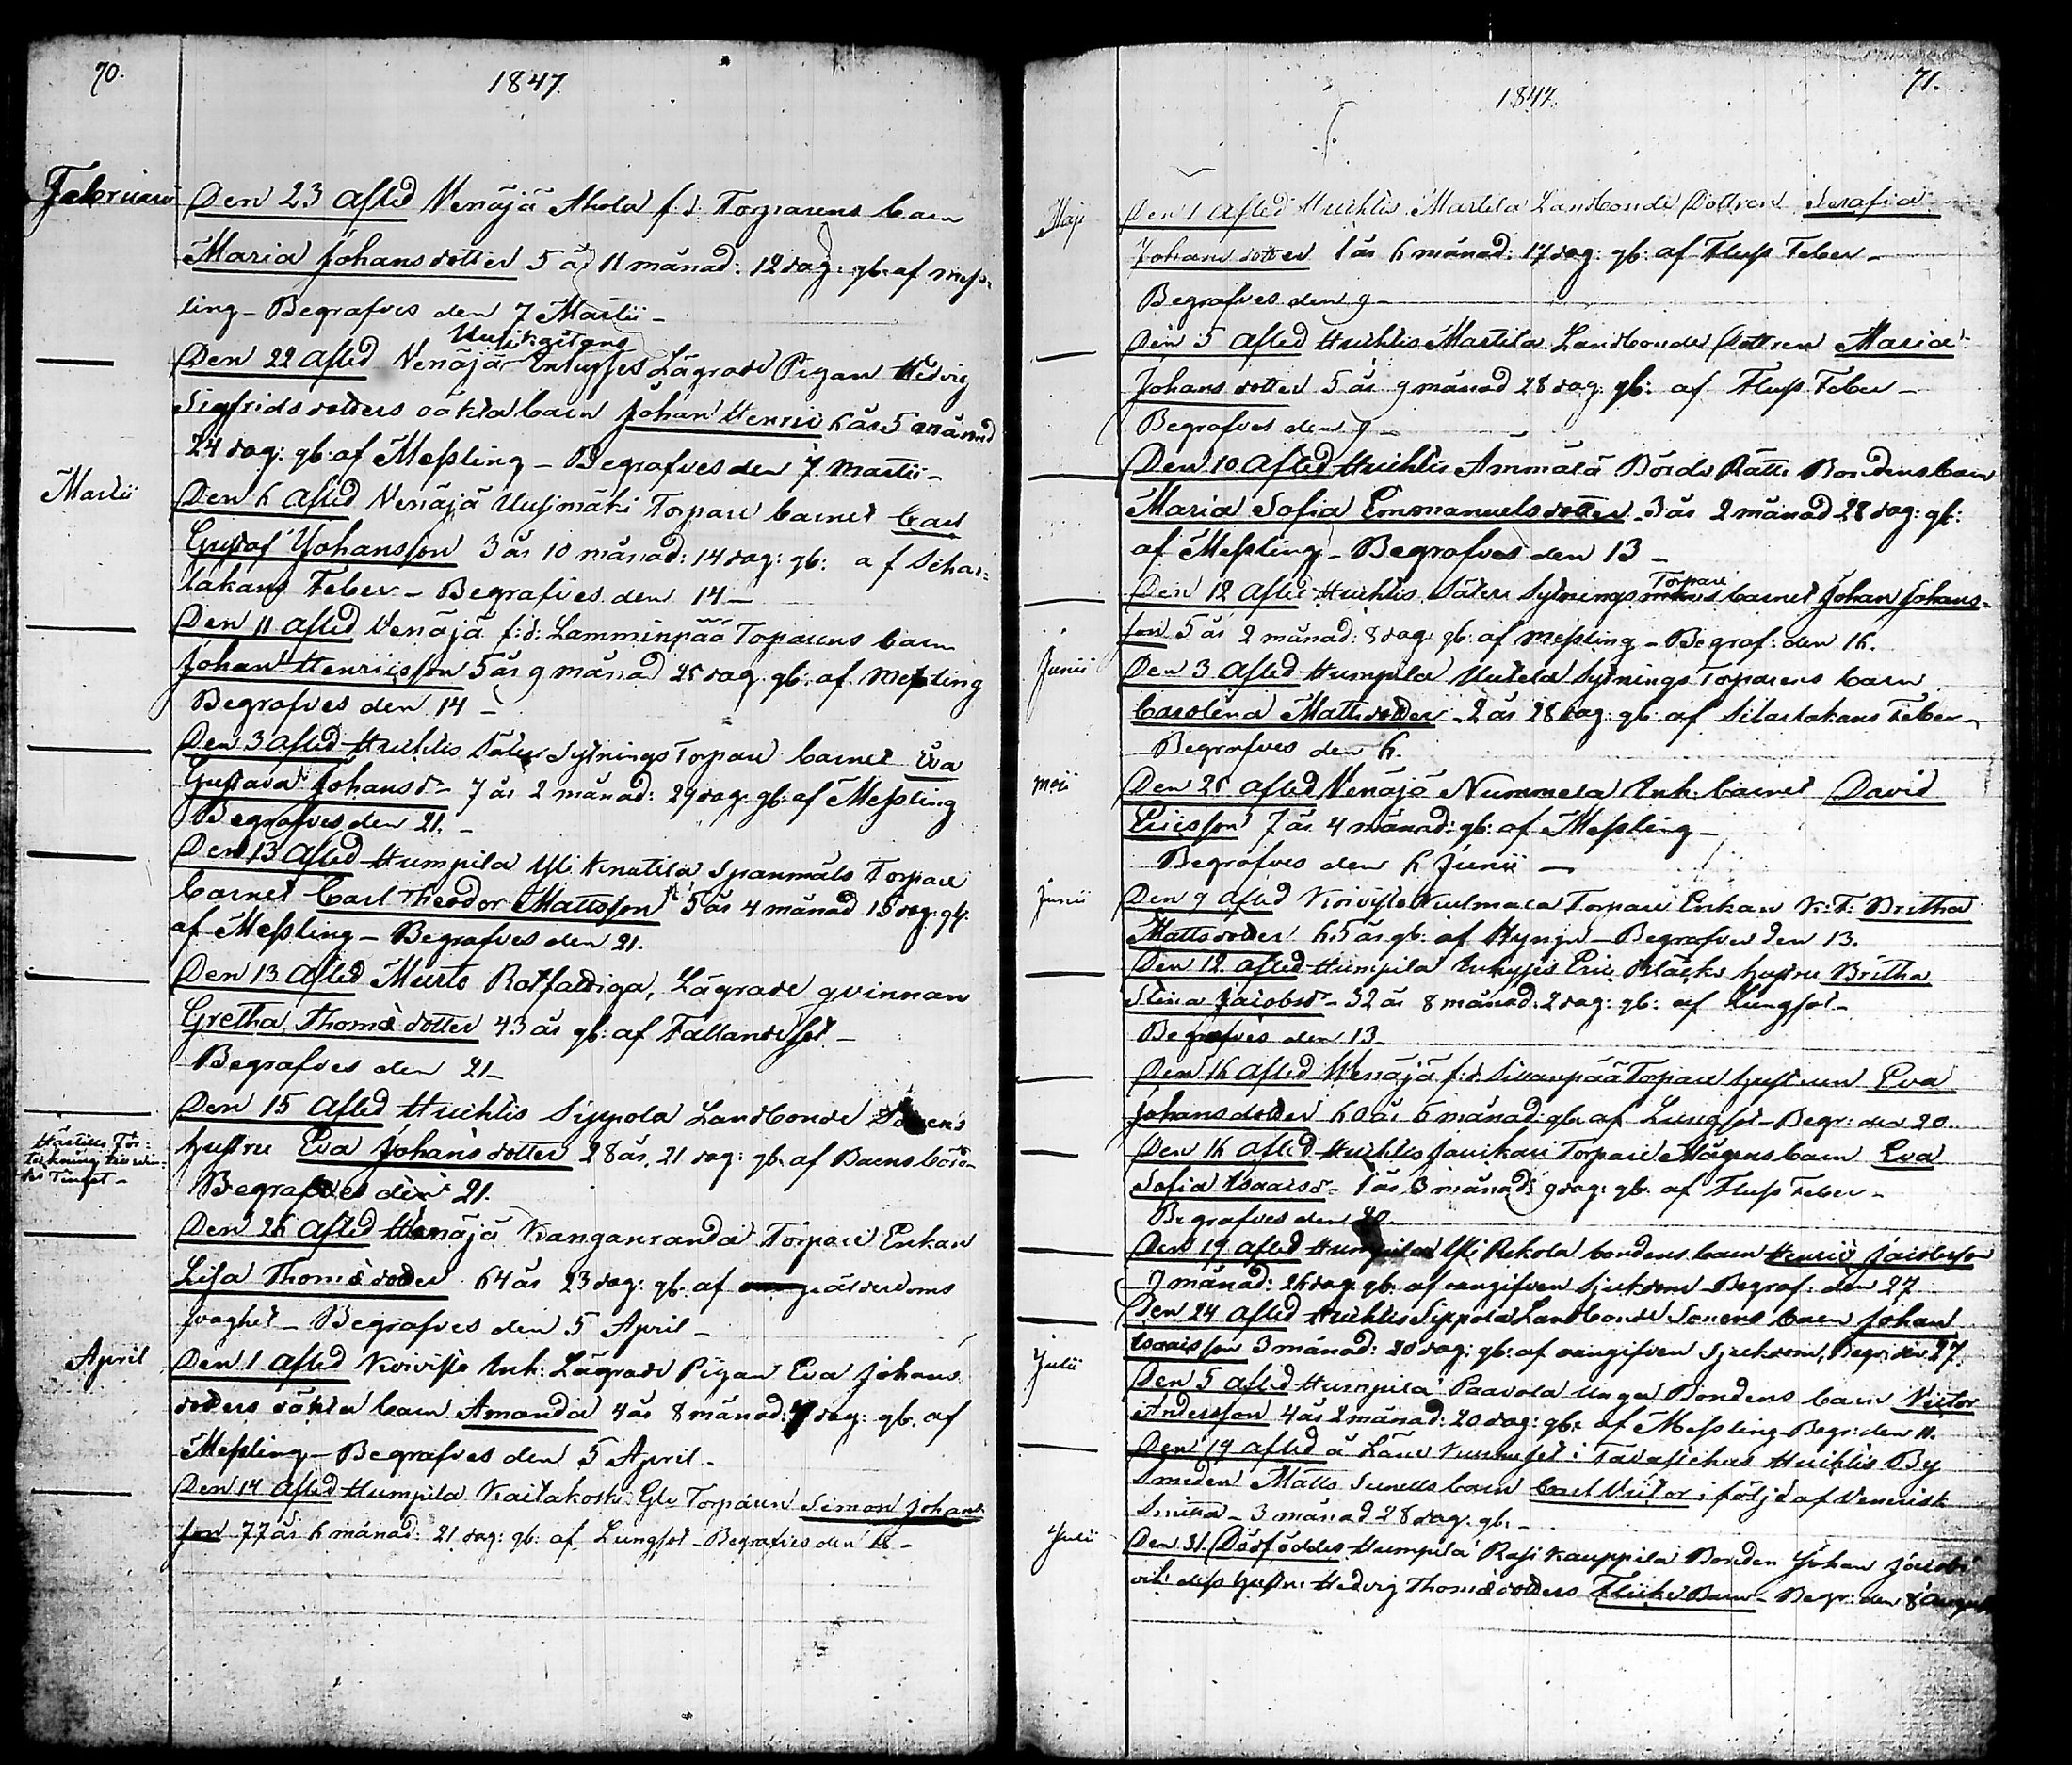 70.
1847.
Februarii Den 23 afled Venäjä Ahola f: d: Torparens barn
Maria Johansdotter 5 år 11 månad: 12 dag: gb: af mess-
ling – Begrafves den 7 Martii –
Uusikaitans
Den 22 afled Venäjä Inhysses Lägrade Pigan Hedvig
Sigfridsdotters oäkta barn Johan Henric 6 år 5 månad
24 dag: gb: af Messling – Begrafves den 7 Martii –
Martii Den 6 afled Venäjä Uusimäki Torpare barnet Carl
Gustaf Johansson 3 år 10 månad: 14 dag: gb: af Schar-
lakans Feber – Begrafves den 14 –
Den 11 afled Venäjä f: d: Lamminpää Toparens barn
Johan Henricsson 5 år 9 månad 25 dag: gb: af Messling
Begrafves den 14 –
Den 3 afled Huhtis Säteri Sytnings Torpare barnet Eva
Gustava Johansd:r 7 år 2 månad: 29 dag: gb: af Messling
Begrafves den 21. –
Den 13 afled Humpila Yli Knutila Spanmåls Torpare
barnet Carl Theodor Mattsson 5 år 4 månad 15 dag: gb:
af Messling – Begrafves den 21.
Den 13 afled Murto Rotfattiga, Lägrade qvinnan
Gretha Thomædotter 43 år gb: af Fallandesot –
Begrafves den 21 –
Den 15 afled Huihtis Sippola Landbonde Sonens
hustru Eva Johansdotter 28 år, 21 dag: gb: af Barnsbörd
Begrafves den 21.
Den 26 afled Wenäjä Kanganranda Torpare Enkan
Lisa Thomædotter 64 år 23 dag: gb: af ålderdoms
svaghet – Begrafves den 5 April –
April Den 1 afled Koivisto Inh: Lägrade Pigan Eva Johans
dotters oäkta barn Amanda 4 år 8 månad: 7 dag: gb: af
Messling – Begrafves den 5 April –
Den 14 afled Humpila Kaitakoski Gle Torparen Simon Johans
son 77 år 6 månad: 21 dag: gb: af Lungsot – Begrafves den 18 –
71.
1847.
Maji Den 1 afled Huihtis Martila Landbonde Dottren Serafia
Johansdotter 1 år 6 månad: 17 dag: gb: af Fluss Feber –
Begrafves den 9 –
Den 5 afled Huihtis Martila Landbonde Dottren Maria
Johansdotter 5 år 9 månad 28 dag: gb: af Fluss Feber –
Begrafves den 9 –
Den 10 afled Huihtis Ammälä Börds Rätts Bondens barn
Maria Sofia Emmanuelsdotter 3 år 2 månad 28 dag: gb:
af Messling – Begrafves den 13 –
Torpare
Den 12 afled Huihtis Säteri Sytnings barnet Johan Johans-
son 5 år 2 månad: 8 dag: gb: af Messling – Begraf: den 16.
Junii Den 3 afled Humpila Uutela Sytnings Torparens barn
Carolina Mattsdotter 2 år 28 dag: gb: af Scharlakans Feber –
Begrafves den 6.
Maii Den 25 afled Venäjä Nummela Inh: barnet David
Ericsson 7 år 4 månad: gb: af Messling –
Begrafves den 6 Junii –
Junii Den 9 afled Koivisto Torpare Enkan K: F: Britha
Mattsdotter 65 år gb: af Hunger – Begrafves den 13.
Den 12 afled Humpila Inhysses Eric Bläcks hustru Britha
Stina Jacobsd:r 32 år 8 månad: 2 dag: gb: af Lungsot –
Begrafves den 13 –
Den 16 afled Wenäjä f: d: Sillanpää Torpare hustrun Eva
Johansdotter 60 år 6 månad: gb: af Lungsot – Begr: den 20.
Den 16 afled Huihtis Torpare Mågens barn Eva
Sofia Isaacsd:r 1 år 3 månad: 9 dag: gb: af Fluss Feber –
Begrafves den 20.
Den 19 afled Humpila Yli Rekola bondens barn Henric Jacobsson
7 månad: 26 dag: gb: af oangifven Sjukdom – Begraf: den 27
Den 24 afled Huihtis Sippola Landbonde Sonens barn Johan
Isaacsson 3 månad: 20 dag: gb: af oangifven Sjukdom, Begr: den 27.
Julii Den 5 afled Humpila Paavola Unga Bondens barn Victor
Andersson 4 år 2 månad: 20 dag: gb: af Messling – Begr: den 11.
Den 19 afled å Läne i Tavastehus Huihtis By
Smeden Matts barn Carl Victor i följd af Venerisk
Smitta – 3 månad 28 dag: gb: –
Julii Den 31. Dödföddes Humpila Rasi Kauppila Bonden Johan
och dess hustru Hedvig Thomædotters Flicke Barn – Begr: den 8 August